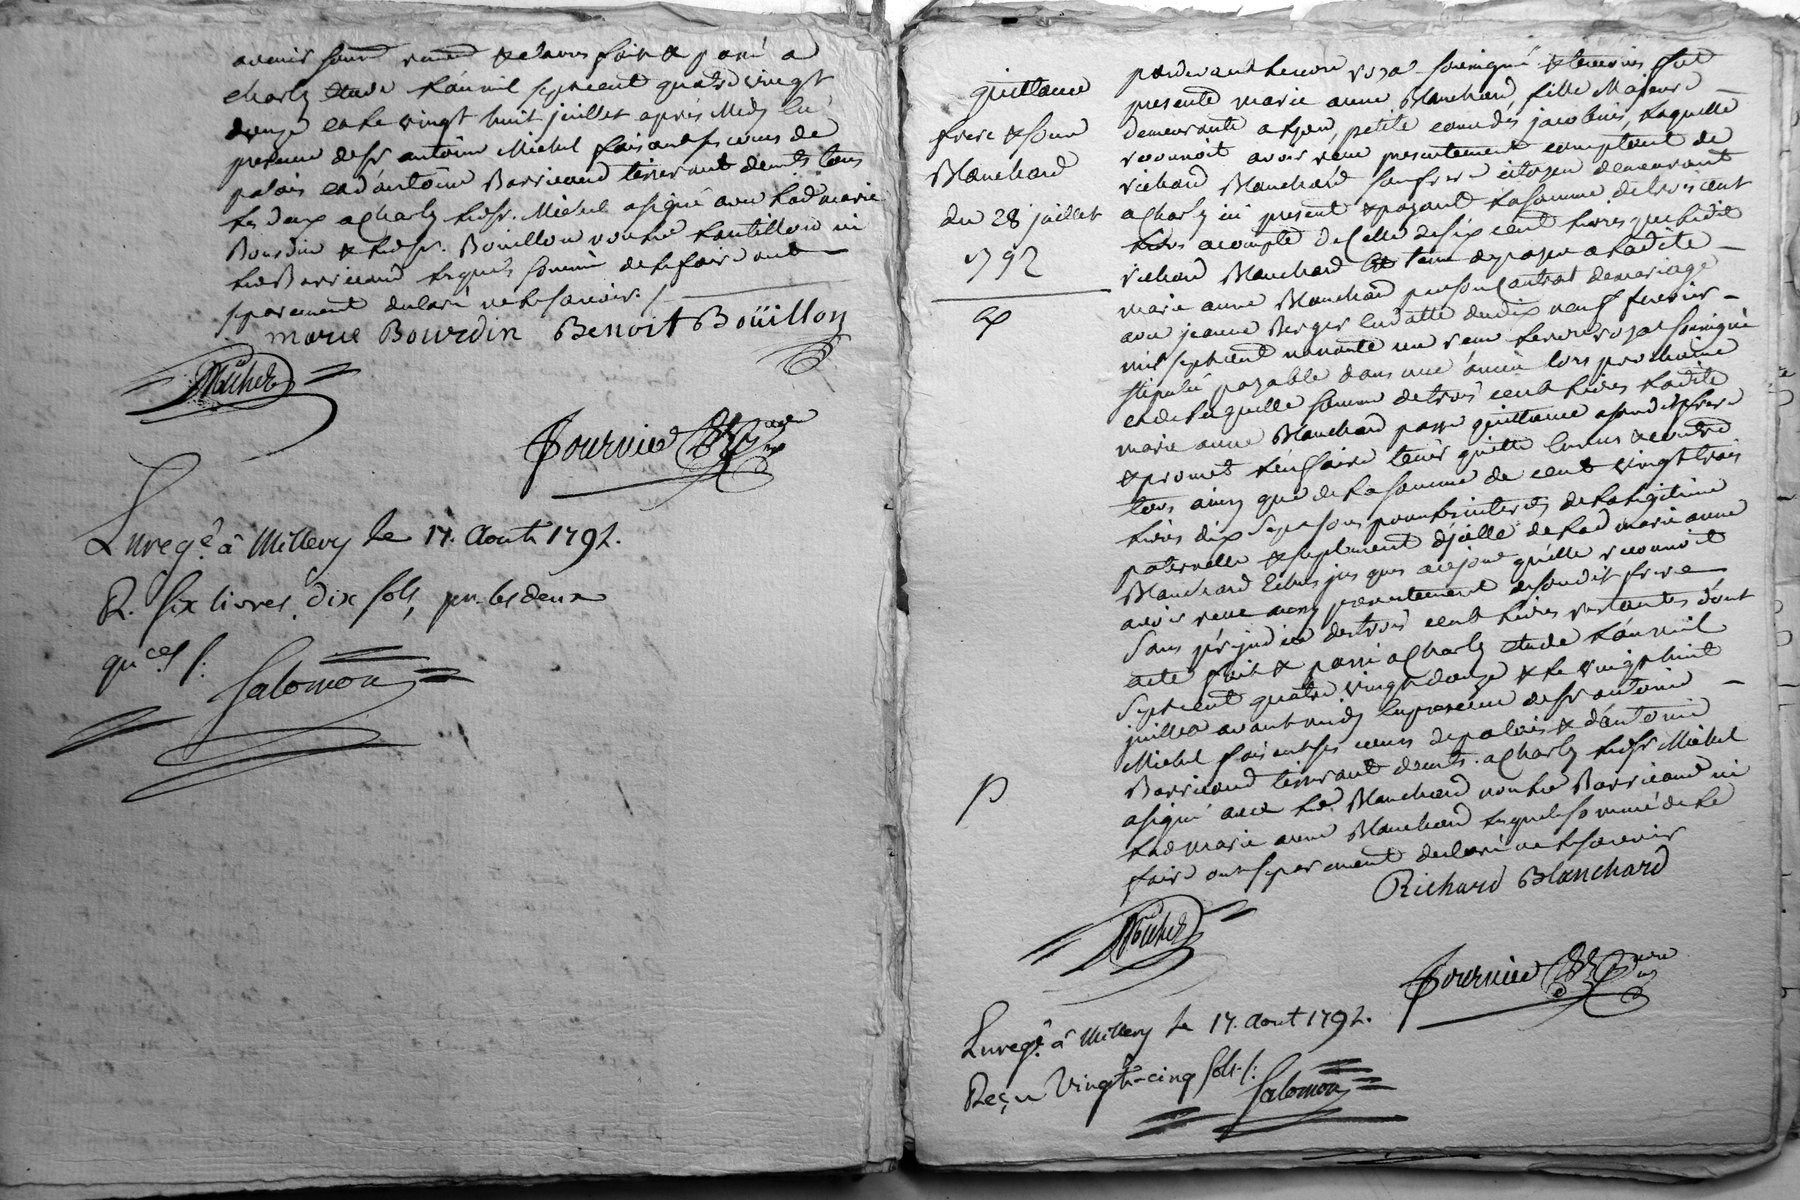 avenir sauf rend et de avoir fait & passé a
charly étude l'an mil sept cent quatre vingt
douze et le vingt huit juillet après Midy en
presence de sr antoine Michel faisant ses cours de
palais et d'antoine Barricaud tisserant demts tous
les deux a Charly led sr. Michel a signé avec lad marie
Bourdin & led sr. Bouillon non he hantillon ni
led Barricaud lesquels sommé de le faire ont
separement declaré ne le scavoir ./.
marie Bourdin Benoit Boüillon
Michel
Fournier
Enregé. â Millery le 17. Aout 1792.
R. Six livres, dix sols, pr. les deux
qu ces /:
Salomon
quittance
frere & sœur
Blanchard
du 28 juillet
1792
pardevant le nore royal soussigné & temoins fut
presente marie anne Blanchard fille Majeure
demeurante a Lyon, petite rue des jacobins, laquelle
reconnoit avoir reçu presentement comptant de
richard Blanchard son frere citoyen demeurant
a Charly ici present & payant la somme de trois cent
livres acompte de Celle de six cent livres que ledit
richard Blanchard est tenu de payer a ladite
marie anne Blanchard par son Contrat de mariage
avec jeanne Berger en datte du dix neuf fevrier
mil sept cent nonante un reçu le nore royal soussigné
stipulé payable dans une année lors prochaine
et de laquelle somme de trois cent livres ladite
marie anne Blanchard passe quittance a sondit frere
& promet l'en faire tenir quitte envers & contre
tous ainsy que de la somme de cent vingt trois
livres dix sept sous pour les interets de la legitime
paternelle & suplement d'jcelle de lad marie anne
Blanchard Echus jusques a ce jour qu'elle reconnoit
avoir reçue aussy presentement de sondit frere
Sans prejudice des trois cent livres restantes dont
acte fait & passé a Charly étude l'an mil
Sept cent quatre vingt douze & le vingt huit
juillet avant midy en presence de sr antoine
Michel faisant ses cours de palais & d'antoine
Barricaud tisserant demts. a Charly led sr Michel
a signé avec led. Blanchard non led Barricaud ni
lad marie anne Blanchard lesquels sommé de le
faire ont separement declaré ne le scavoir
Richard Blanchard
Michel
Fournier
Enregé. â Millery le 17. Aout 1792.
Reçu Vingt-cinq sols /:
Salomon